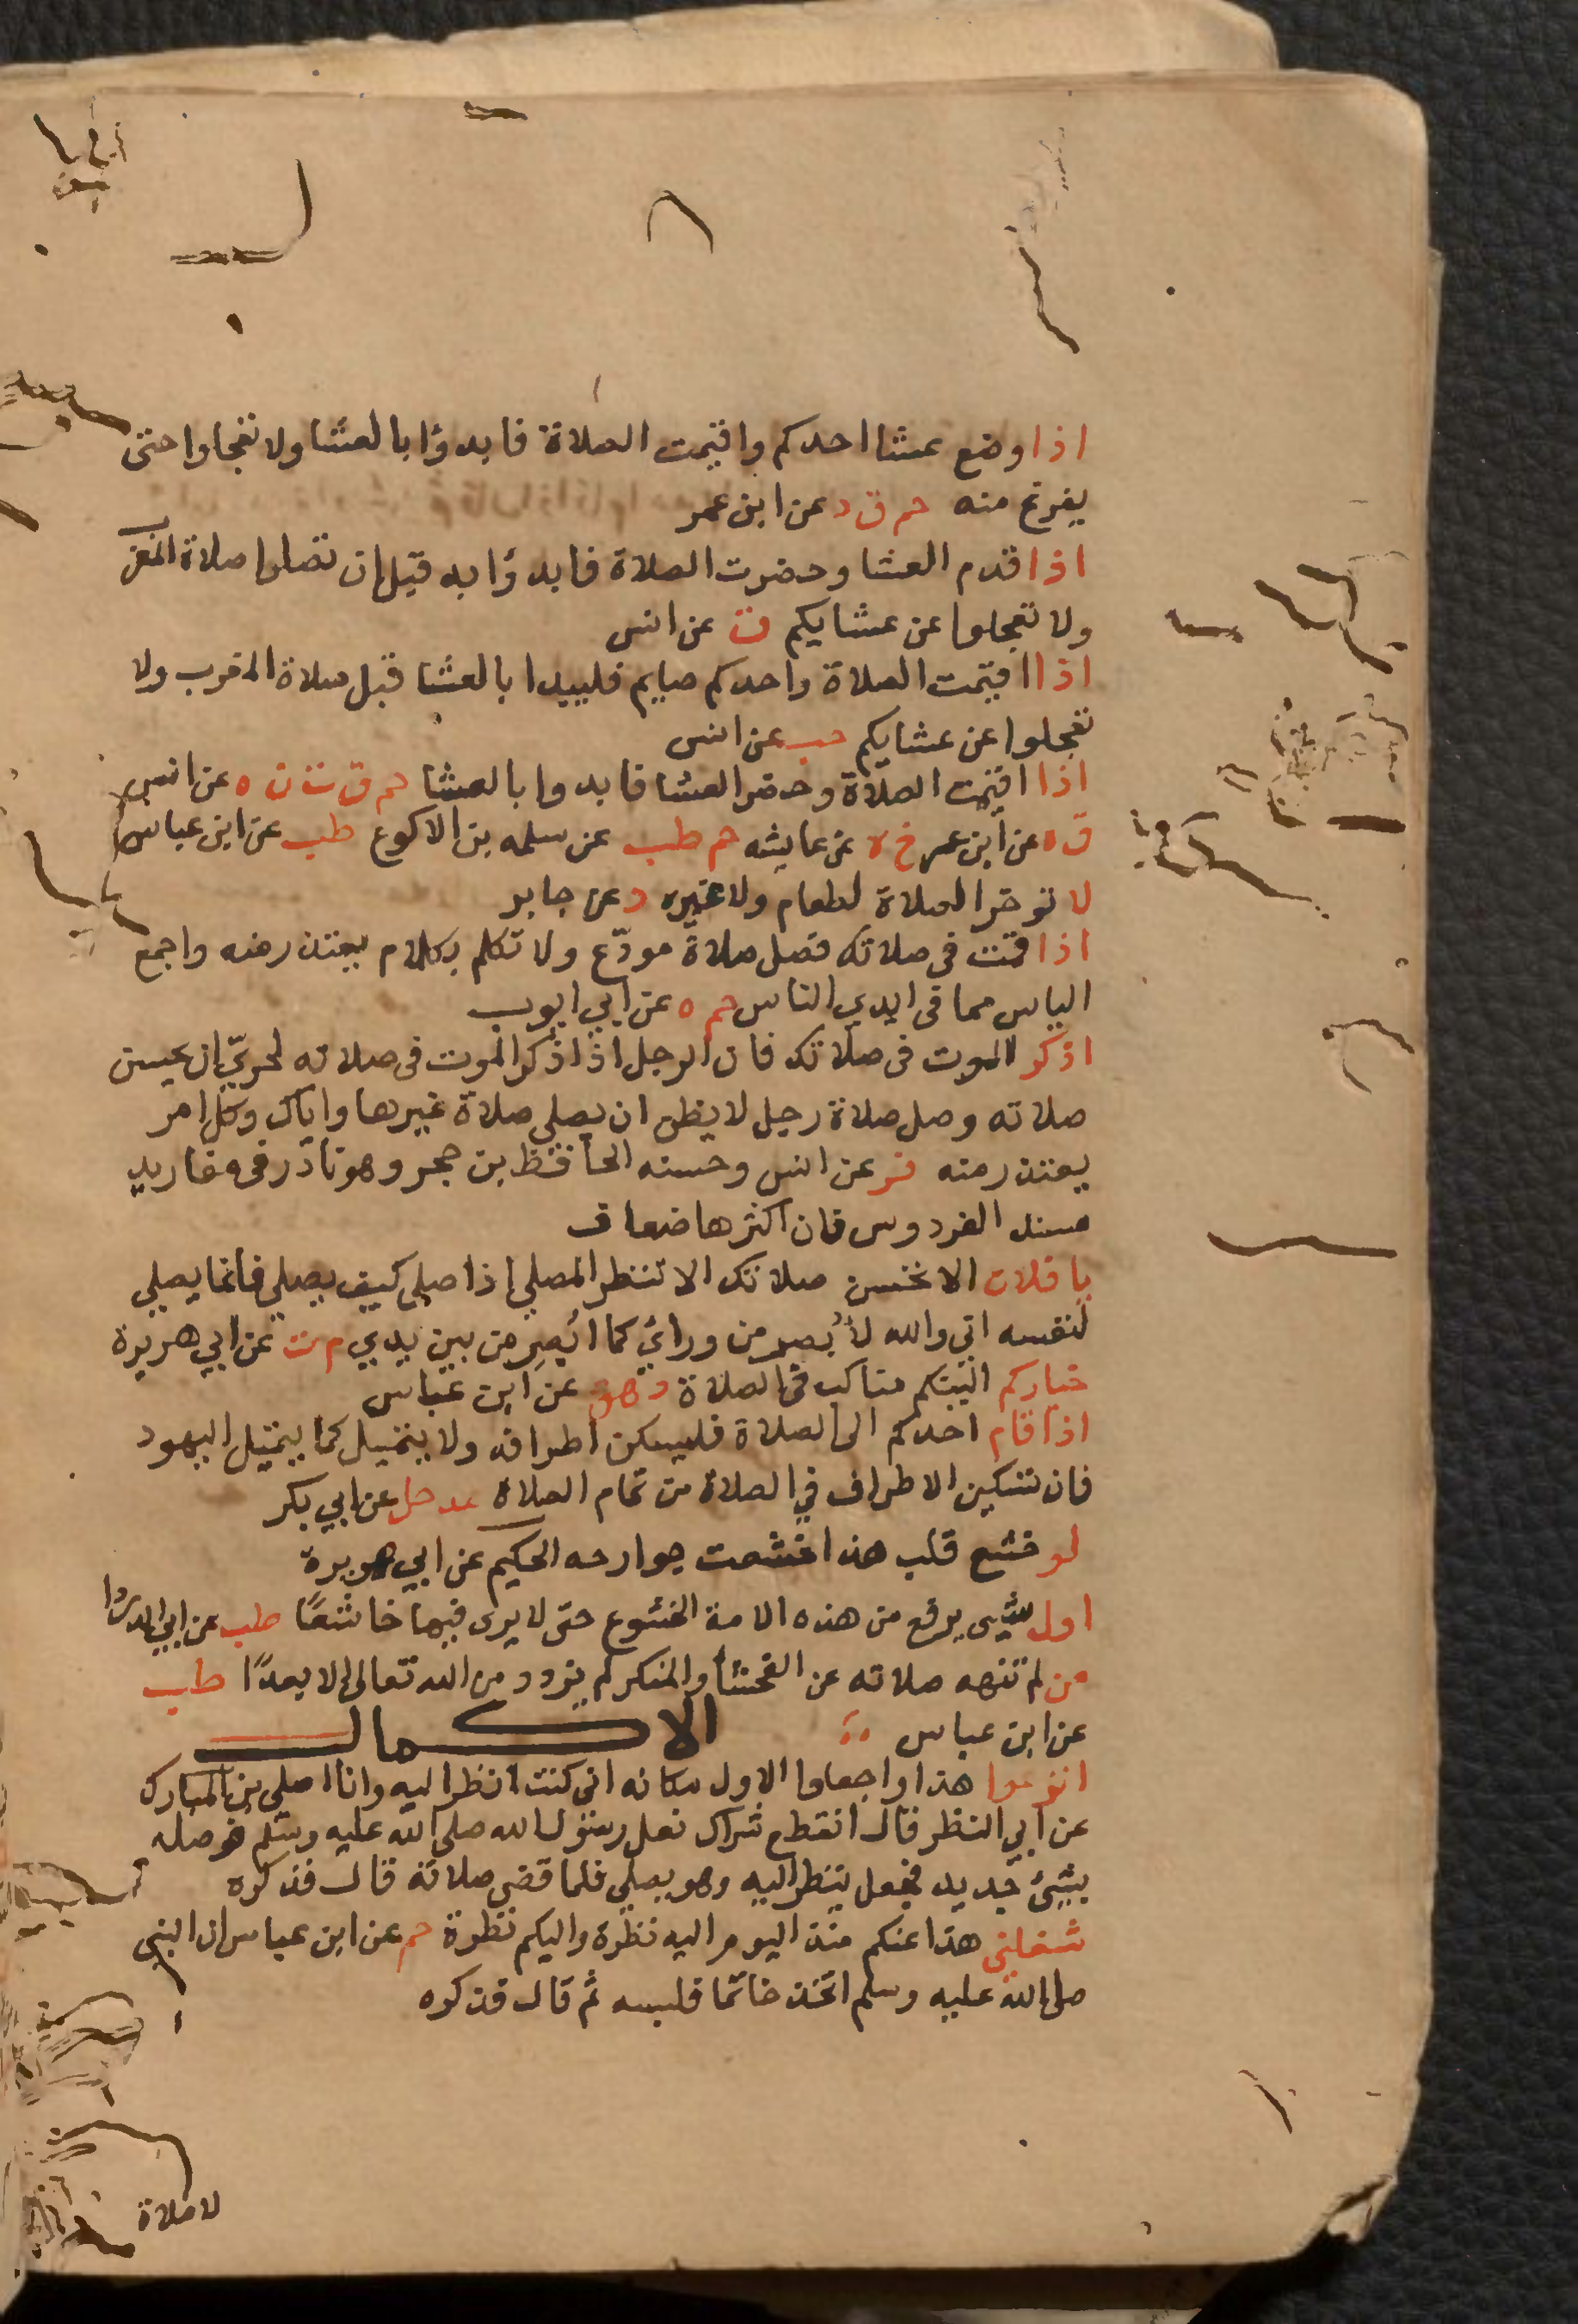 اذا وضع عشا احدكم واقيمت الصلاة فابدؤا بالعشا ولا تعجلوا حتى
يفرغ منه حم ق د عن ابن عمر
اذا قدم العشا وحضرت الصلاة فابدؤا به قبل ان تصلوا صلاة المغرب
ولا تعجلوا عن عشايكم ق عن انس
اذا اقيمت الصلاة واحدكم صايم فليبدا بالعشا قبل صلاة المغرب ولا
تعجلوا عن عشايكم حب عن انس
اذا اقيمت الصلاة وحضر العشا فابدوا بالعشا حم ق ت ن ه عن انس
ق ه عن ابن عمر خ ه عن عايشه حم طب عن سلمه بن الاكوع طب عن ابن عباس
لا توخر الصلاة لطعام ولا غيره د عن جابر
اذا قمت في صلاتك فصل صلاة مودّع ولا تكلم بكلام يعتذر منه واجمع
الياس مما في ايدي الناس حم ه عن ابي ايوب
اذكر الموت في صلاتك فان الرجل اذا ذكر الموت في صلاته لحريّ ان يحسن
صلاته وصل صلاة رجل لا يظن ان يصلي صلاة غيرها واياك وكل امر
يعتذر منه فر عن انس وحسنه الحافظ بن حجر وهو نادر في مفاريد
مسند الفردوس فان اكثرها ضعاف
يا فلان الا تحسن صلاتك الا تنظر المصلي اذا صلى كيف يصلي فانما يصلي
لنفسه اني والله لأبصر من ورائي كما أبصِر من بين يدي م ن عن ابي هريرة
خياركم الينكم مناكب في الصلاة د هق عن ابن عباس
اذا قام احدكم الى الصلاة فليسكن اطرافه ولا يتميل كما يتميل اليهود
فان تسكين الاطراف في الصلاة من تمام الصلاة عد حل عن ابي بكر
لو خشع قلب هذا خشعت جوارحه الحكيم عن ابي هريرة
اول شيى يرفع من هذه الامة الخشوع حتى لا يرى فيها خاشعًا طب عن ابي الدردا
من لم تنهه صلاته عن الفحشا والمنكر لم يزدد من الله تعالى الا بعدًا طب
عن ابن عباس الاكمال
انزعوا هذا واجعلوا الاول مكانه اني كنت انظر اليه وانا اصلي بن المبارك
عن ابي النظر قال انقطع شراك نعل رسول الله صلى الله عليه وسلم فوصله
بشيئ جديد فجعل ينظر اليه وهو يصلي فلما قضى صلاته قال فذكره
شغلني هذا عنكم منذ اليوم اليه نظرة واليكم نظرة حم عن ابن عباس ان النبي
صلى الله عليه وسلم اتخذ خاتما فلبسه ثم قال فذكره
لا صلاة